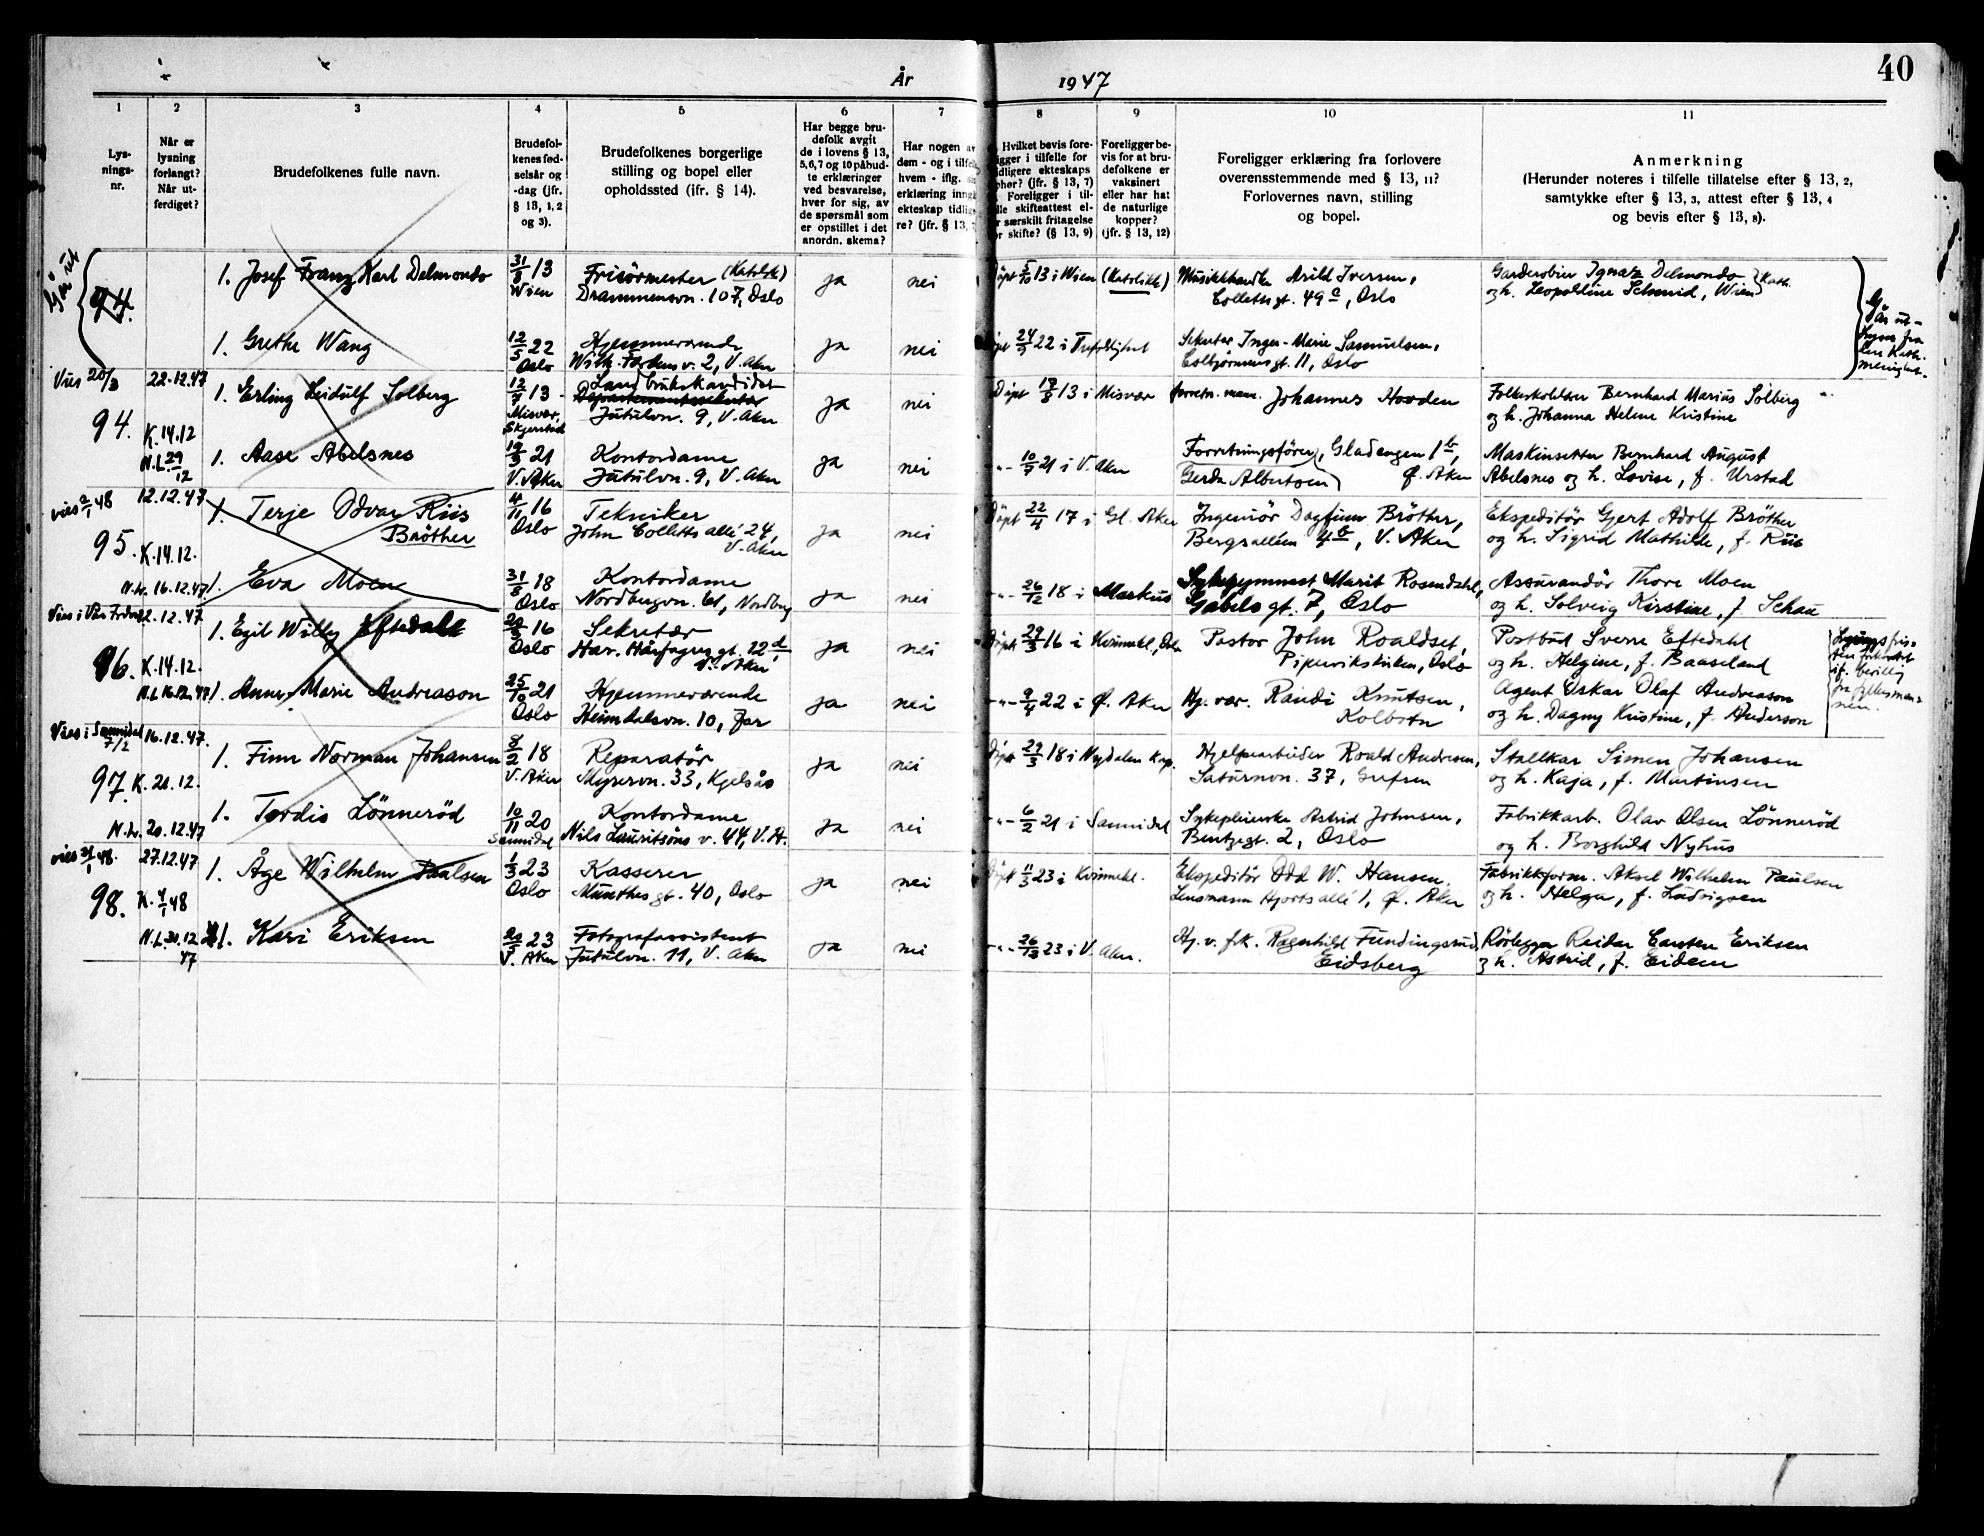 40
År 1947
1 2 3 4 5 6 7 8 9 10 11
Lys-
nings-
nr.
Når er
lysning
forlangt?
Når ut-
ferdiget?
Brudefolkenes fulle navn.
Brudefol-
kenes fød-
selsår og
-dag (jfr.
§ 13, 1, 2
og 3).
Brudefolkenes borgerlige
stilling og bopel eller
opholdssted (ifr. § 14).
Har begge bru-
defolk avgit
de i lovens § 13,
5, 6, 7 og 10 påbud-
te erklæringer
ved besvarelse,
hver for sig, av
de spørsmål som
er opstillet i det
anordn. skema?
Har nogen av
dem - og i tilfelle
hvem - iflg. sin
erklæring inngå
ekteskap tidlige
re? (jfr. § 13,
Hvilket bevis fore-
igger i tilfelle for
idligere ekteskaps
phør? (jfr. § 13, 7)
Foreligger i til-
lle skifteattest el-
r særskilt fritagelse
or skifte? (§ 13, 9)
Foreligger be-
vis for at bru-
defolkene er
vaksinert
eller har hat
de naturlige
kopper?
(jfr. § 13, 12)
Foreligger erklæring fra forlovere
overensstemmende med § 13, 11?
Forlovernes navn, stilling
og bopel.
Anmerkning
(Herunder noteres i tilfelle tillatelse efter § 13, 2,
samtykke efter § 13, 3, attest efter § 13, 4
og bevis efter § 13, 8).
94.
1. Josef Franz Karl Delmondo
31/8 13
Wien
Frisörmester (Katolikk)
Drammensvn. 107, Oslo
ja nei
Döpt 5/10 13 i Wien (Katolikk)
Musikkhandler Arild Iversen,
Collettsgt. 49 c, Oslo
Garderobier Ignaz Delmondo
og h. Leopoldine Schmid, Wien } Kath.
Går ut -
lyses fra
den Kath.
menighet.
1. Grethe Wang
12/5 22
Oslo
Hjemmeværende
Wilh. Fardens v. 2, V. Aker
ja nei
Döpt 24/9 22 i Trefoldighet
Sekretær Inger-Marie Samuelsen,
Esbjörnsens gt. 11, Oslo
Vies 20/3
94.
22.12.47
K. 14.12
N.L. 29/12
1. Erling Leidulf Solberg
12/7 13
Misvær,
Skjerstad
Landbrukskandidat
Departementssekretær
Jutulvn. 9, V. Aker
ja nei
Döpt 17/8 13 i Misvær
forretn. mann. Johannes Hovden
Folkeskolelær Bernhard Marius Solberg
og h. Johanna Helene Kristine
1. Aase Abelsnes
19/3 21
V. Aker
Kontordame
Jutulvn. 9, V. Aker
ja nei
-"- 10/7 21 i V. Aker
Forretningsförer, Gladengen 1 b,
Gerda Albertsen Ø. Aker
Maskinsetter Bernhard August
Abelsnes og h. Lovise, f. Urstad
vies 2/1 48
95.
12.12.47
K. 14.12.
N.L. 16.12.47
1. Terje Odvar Riis
Bröther
4/11 16
Oslo
Tekniker
John Colletts allé 24,
V. Aker
ja nei
Döpt 22/4 17 i Gl. Aker
Ingeniör Dagfinn Bröther,
Bergsalléen 4 b, V. Aker
Ekspeditör Gjert Adolf Bröther
og h. Sigrid Mathilde, f. Riis
1. Eva Moen
31/8 18
Oslo
Kontordame
Nordbergvn. 61, Nordberg
ja nei
-"- 26/12 18 i Markus
Sykegymnast Marit Rosendahl,
Gabels gt. 7, Oslo
Assurandör Thore Moen
og h. Solveig Kirstine, f. Schau
Vies i Vår Frelser
96.
12.12.47
K. 14.12.
N.L. 16.12.47
1. Egil Willy Eftedahl
16
Oslo
Sekretær
Har. Hårfagres gt. 12 d,
V. Aker
ja nei
Döpt 29/3 16 i Krimmekl, Oslo
Pastor John Roaldset,
Pipervikskirken, Oslo
Postbud Sverre Eftedahl
og h. Helgine, f. Baaseland
1. Anne Marie Andreason
25/10 21
Oslo
Hjemmeværende
Heimdalsvn. 10, Jar
ja nei
-"- 9/4 22 i Ø. Aker
Hj. vær. Randi Knutsen,
Kolbotn
Agent Oskar Olaf Andreason
og h. Dagny Kristine, f. Anderson
Vies i Sannidal
7/2
97.
16.12.47.
K. 21.12.
N.L. 20.12.47
1. Finn Norman Johansen
8/2 18
V. Aker
Reparatör
Myrervn. 33, Kjelsås
ja nei
Döpt 29/3 18 i Nydalen Kap.
Hjelpearbeider Roald Andresen,
Saturnvn. 37, Grefsen
Stallkar Simen Johansen
og h. Kaja, f. Martinsen
1. Tordis Lönneröd
10/11 20
Sannidal
Kontordame
Nils Lauritsöns v. 44, V.A.
ja nei
-"- 6/2 21 i Sannidal
Sykepleierske Astrid Johnsen,
Bentzegt. 2, Oslo
Fabrikkarb. Olav Olsen Lönneröd
og h. Borghild Nyhus
vies 31/1 48.
98.
27.12.47
K. 4/1 48
N.L. 30.12
47
1. Åge Wilhelm Paulsen
1/3 23
Oslo
Kasserer
Munthes gt. 40, Oslo
ja nei
Döpt 11/3 23 i Krimmekl.
Ekspeditör Odd W. Hansen,
Lensmann Hjorts allé 1, Ø. Aker
Fabrikkform. Aksel Wilhelm Paulsen
og h. Helga, f. Ludvigsen
1. Kari Eriksen
20/5 23
V. Aker
Fotografassistent
Jutulvn. 11, V. Aker
ja nei
-"- 26/12 23 i V. Aker.
Hj. v. frk. Ragnhild Fundingsrud,
Eidsberg
Rörlegger Reidar Carsten Eriksen
og h. Astrid, f. Eidem